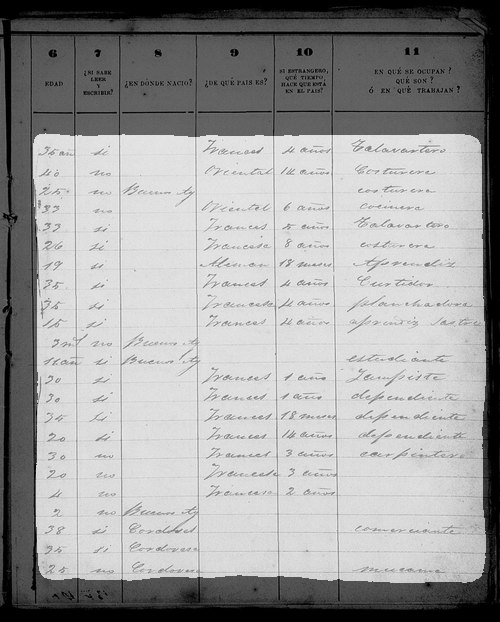 6 7 8 9 10 11
EDAD ¿SI SABE LEER Y ESCRIBIR? ¿EN DÓNDE NACIO? ¿DE QUÉ PAIS ES? SI ESTRANGERO, QUÉ TIEMPO HACE QUE ESTÁ EN EL PAIS? EN QUÉ SE OCUPAN? QUÉ SON? Ó EN QUÉ TRABAJAN?
35 añ si Frances 4 años Talavartero
40 no Oriental 14 años Costurera
25 no Buenos Ay costurera
33 no Oriental 6 años cocinera
33 si Frances 5 años Talavartero
26 si Francesa 8 años costurera
19 si Aleman 18 meses Aprendiz
35 si Frances 4 años Curtidor
35 si Francesa 4 años planchadora
15 si Frances 4 años aprendiz sastre
3 no Buenos Ay
11 añ si Buenos Ay estudiante
30 si Frances 1 año
30 si Frances 1 año dependiente
34 si Frances 18 meses dependiente
20 si Frances 14 años dependiente
30 no Frances 3 años carpintero
20 no Francesa 3 años
4 no Francesa 2 años
2 no Buenos Ay
38 si Cordobes comerciante
35 si Cordovesa
25 no Cordovesa mucama